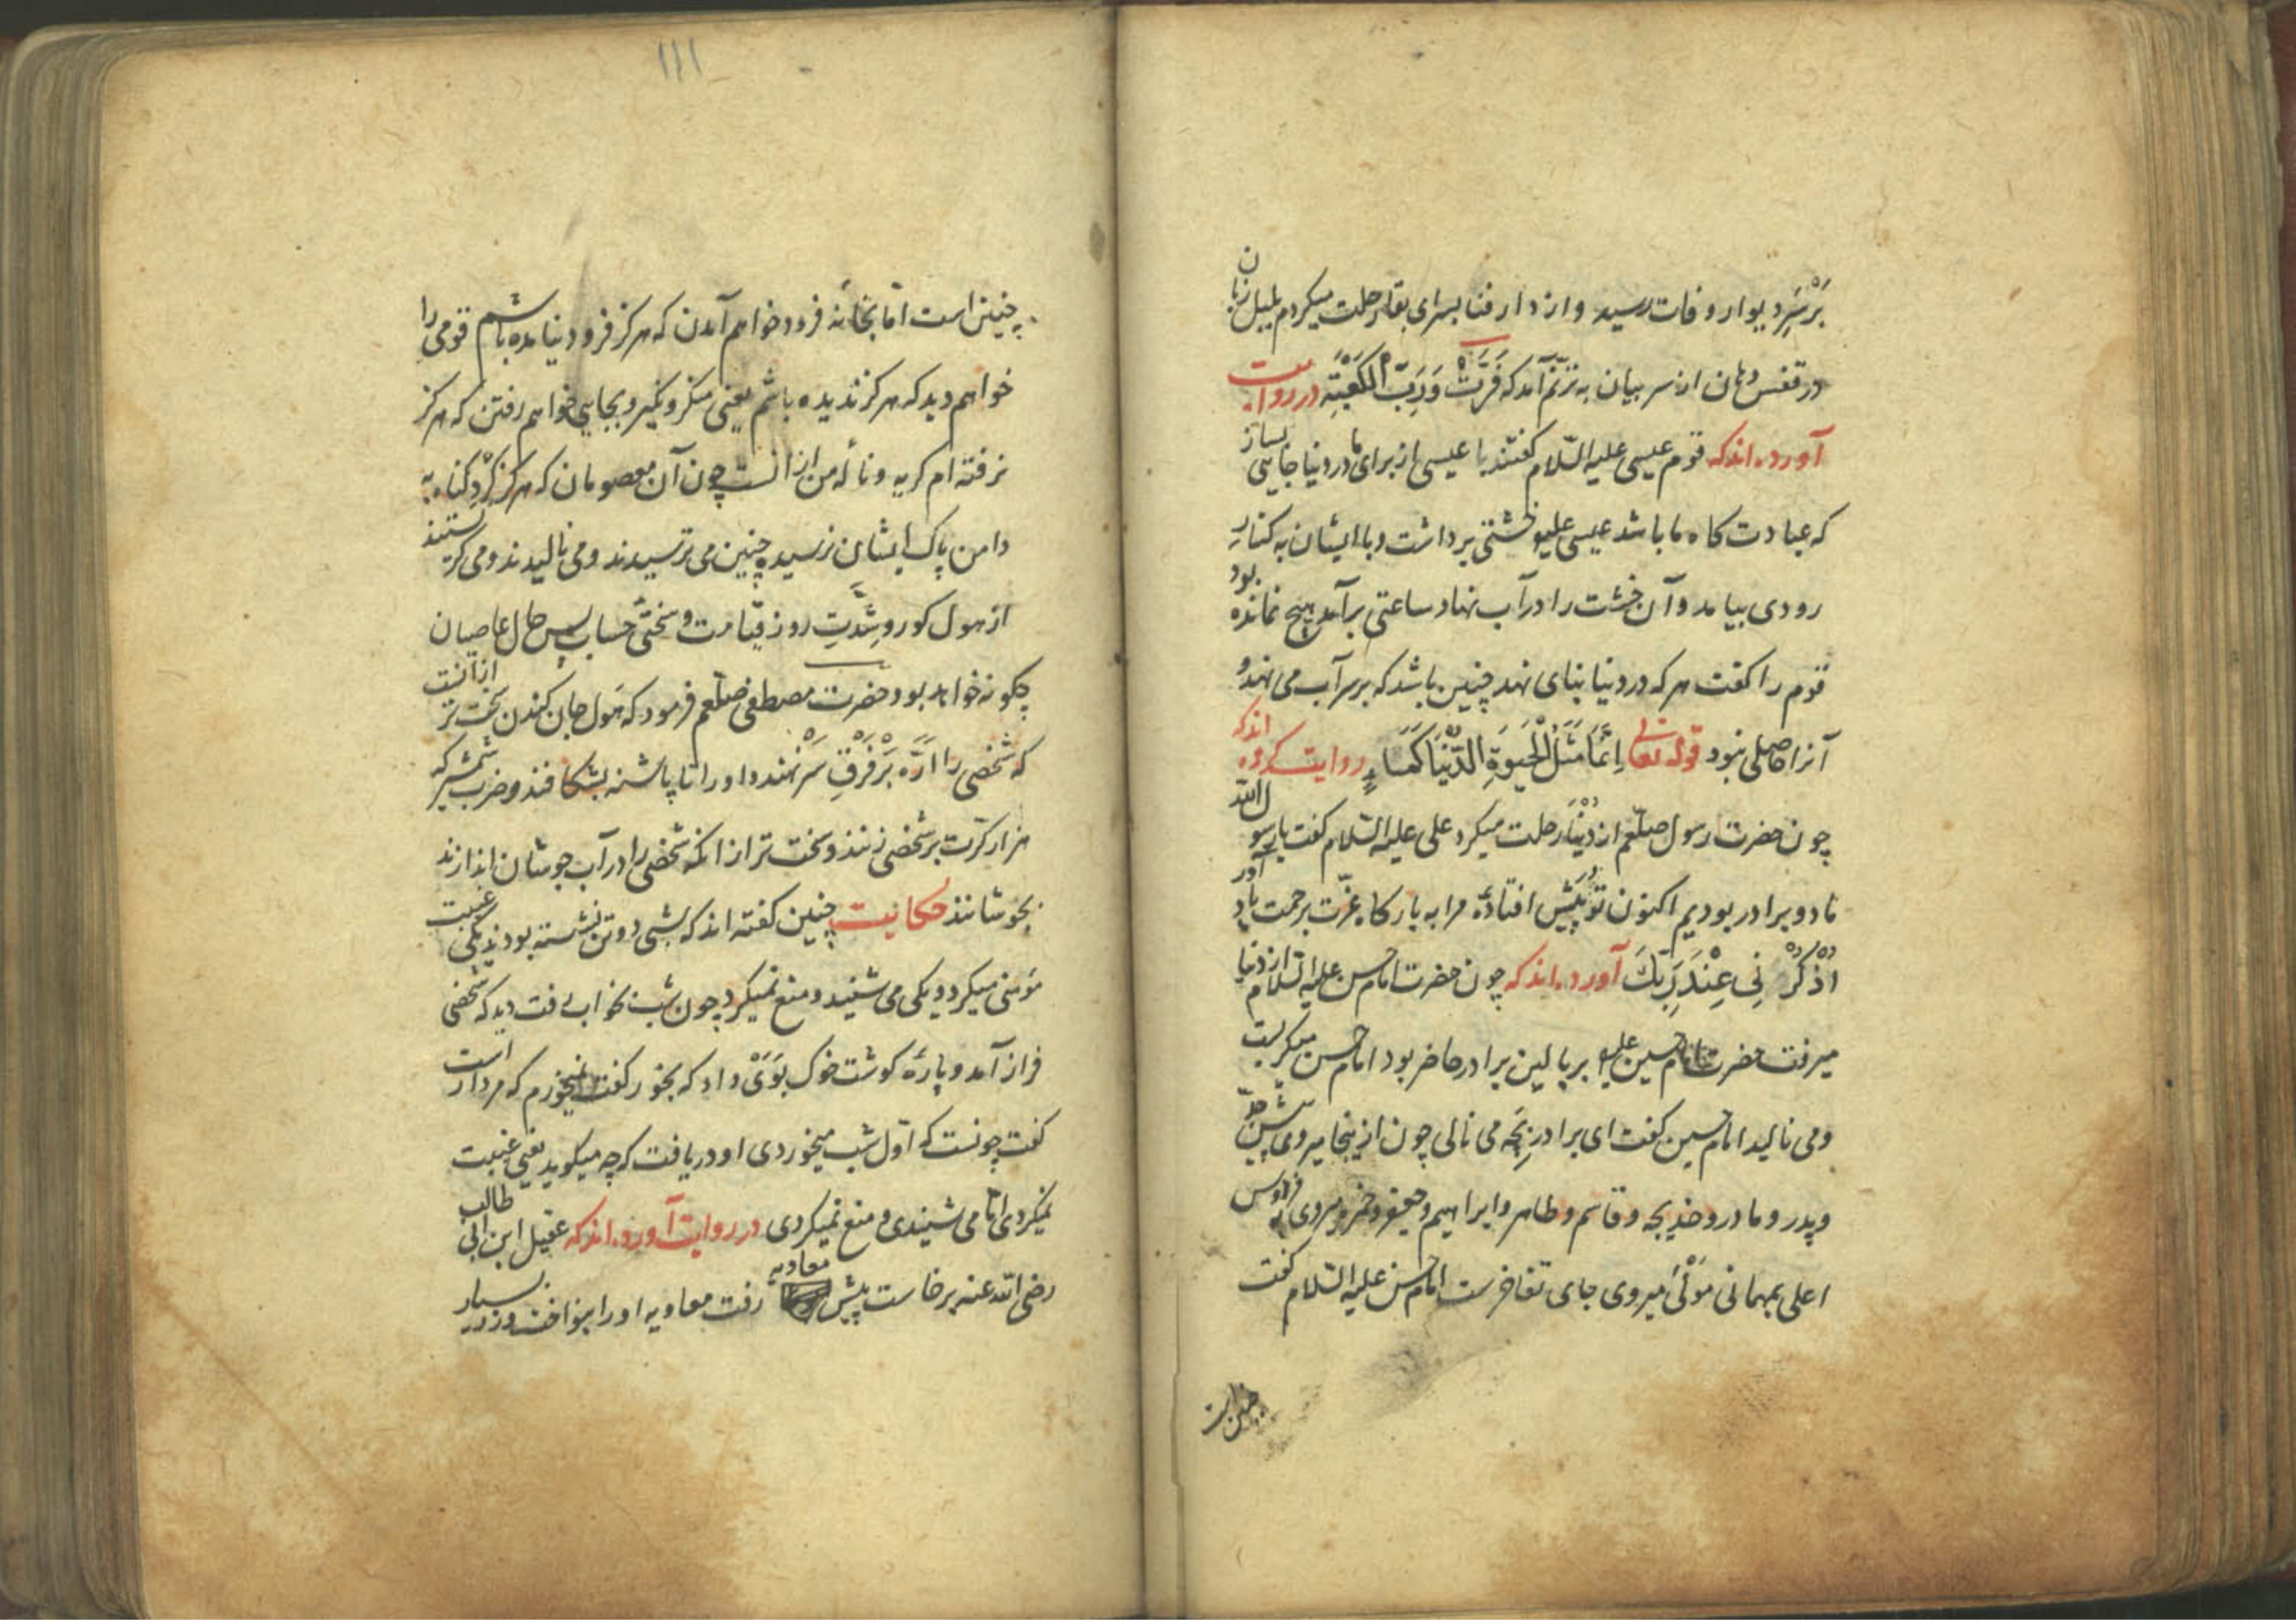 بَرْسَرِ دیوار وفات رسید و از دار فنا بسرای بقا رحلت میکردم بلبل زبان
در قفس دهان از سر بیان به ترنّم آمد که فَزَّتْ وَرَبِّ الْکَعْبَتِه در روایت
آورده اند که قوم عیسی علیه السّلام گفتند یا عیسی از برای ما در دنیا جایی بساز
که عبادت کاه ما باشد عیسی علیه خشتی برداشت و با ایشان به کنارِ
رودی بیامد و آن خشت را در آب نهاد ساعتی برآمد هیچ نمانده بود
قوم را کفت هر که در دنیا بنای نهد چنین باشد که بر سر آب می نهد و
آنرا حاصلی نبود قوله تعالی اِنَّمَا مَثَلُ الْحَیَوةِ الدُّنْیَا کَمَاءٍ روایت کرده اند که
چون حضرت رسول صلّعم از دُنْیَا رحلت میکرد علی علیه السّلام کفت یا رسول الله
ما دو برادر بودیم اکنون تو پَیش افتادهٔ مرا به بارکاه عزّت برحمت یاد آور
اذْکُرْنِی عِنْدَ رَبِّكَ آورده اند که چون حضرت امام حسن علیه السّلام از دنیا
میرفت حضرت امام حسین علیه بر بالین برادر حاضر بود امام حسن میکریست
و می نالید امام حسین کفت ای برادر بَچه می نالی چون از ینجا میروی پیش جدّ
و پدر و مادر و خدیجه و قاسم و طاهر و ابراهیم و جعفر و حمزه میروی به فردوس
اعلی بمهمانی مَوْلَیٰ میروی جای تفاخرست امام حسن علیه السّلام کفت
چنین است
۱۱۱
چنین است امّا بخانهٔ فرود خواهم آمدن که هرکز فرود نیامده باشم قومی را
خواهم دید که هرکز ندیده باشم یعنی منکر و نکیر و بجایی خواهم رفتن که هرکز
نرفته ام کریه و نالهٔ من از انست چون آن معصومان که هرکز کَرْدِ کناه به
دامن پاک ایشان نرسیده چنین می ترسیدند و می نالیدند و می کریستند
از هول کور و شِدَّتِ روز قیامت و سختیٔ حساب پس حال عاصیان
چکونه خواهد بود حضرت مصطفی صلّعم فرمود که هَول جان کندن سخت تر از آنست
که شخصی را ارَّه بَرْفَرْقِ سَرْ نهند و او را تا پاشنه بشکافند و ضرب شمشیر که
هزار کرّت بر شخصی زنند و سخت تر از انکه شخصی را در آب جوشان اندازند
بجوشانند حکایت چنین کفته اند که شبی دو تن نشسته بودند یکی غیبت
مؤمنی میکرد و یکی می شنید و منع نمیکرد چون شب بخواب رفت دید که شخصی
فراز آمد و پارهٔ کوشت خوک بوَیْ داد که بخور کفت نمیخورم که مردار است
کفت چونست که اوّل شب میخوردی او دریافت که چه میکوید یعنی غیبت
نمیکردی امّا می شنیدی و منع نمیکردی در روایت آورده اند که عقیل ابن ابی طالب
رضی الله عنه برخاست پیش معاویه رفت معاویه او را بنواخت و زر بسیار